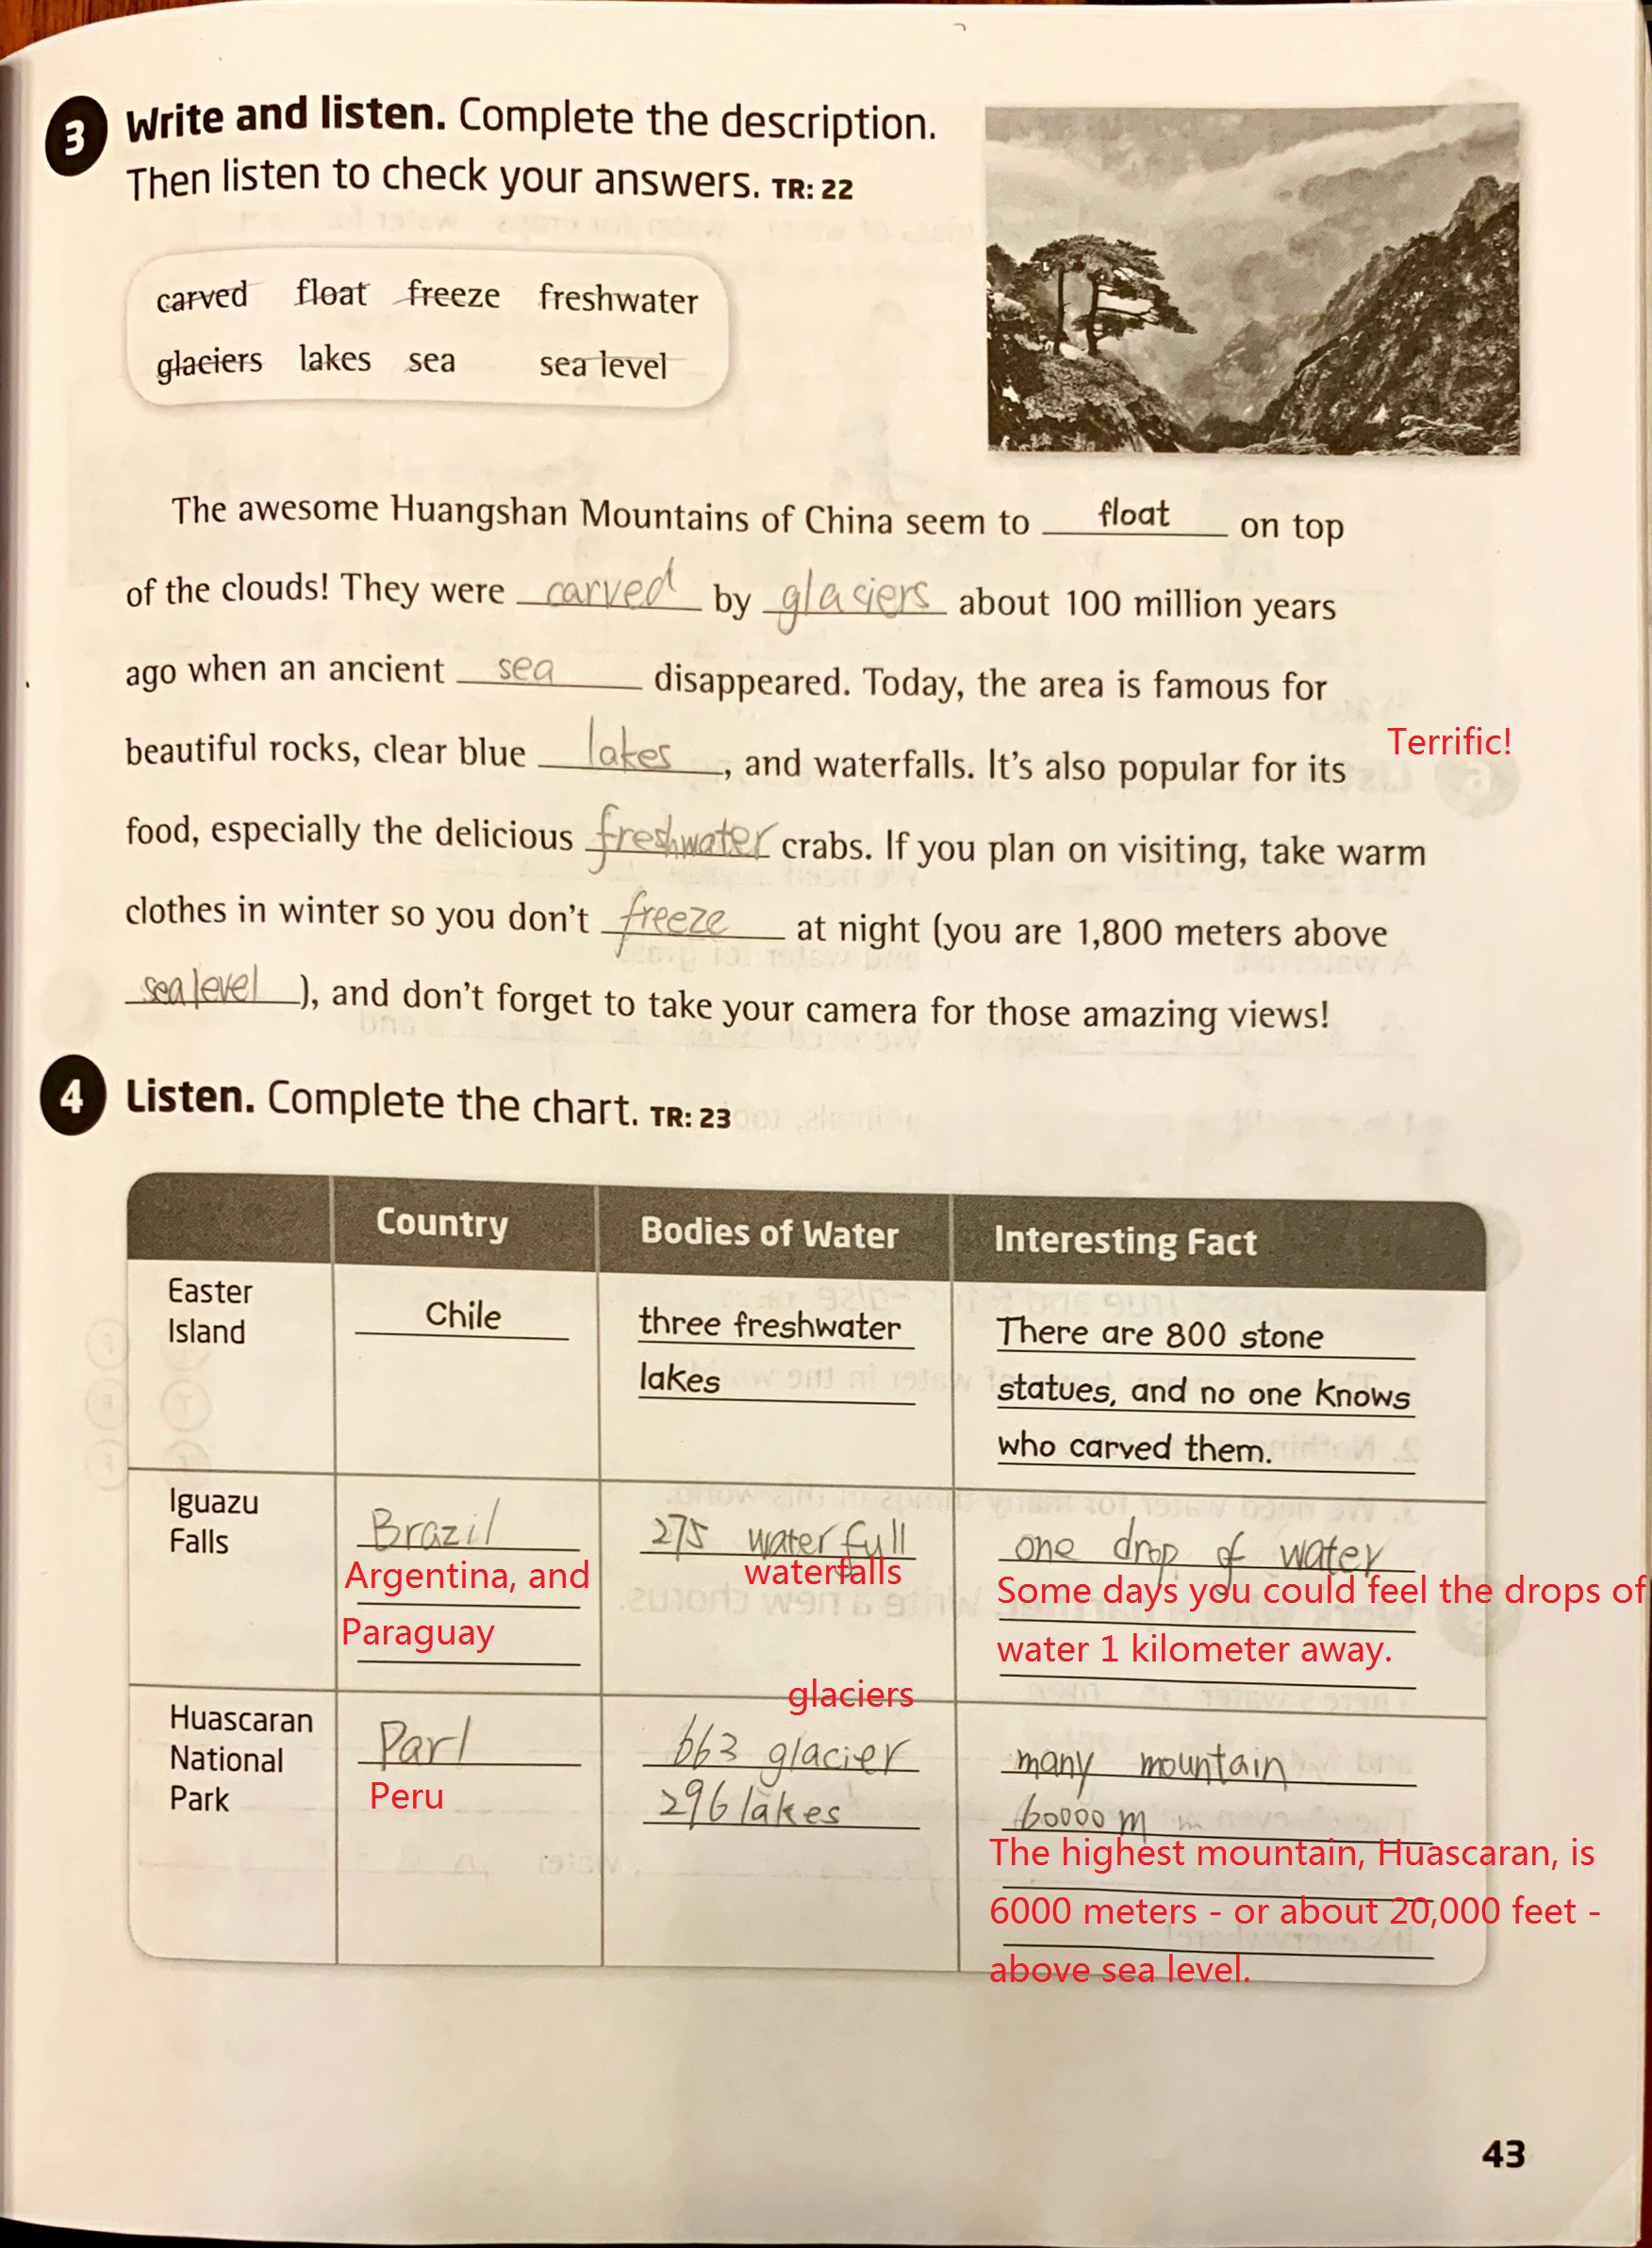 3 Write and listen. Complete the description.
Then listen to check your answers. TR: 22
carved float freeze freshwater
glaciers lakes sea sea level
The awesome Huangshan Mountains of China seem to float on top
of the clouds! They were carved by glaciers about 100 million years
ago when an ancient sea disappeared. Today, the area is famous for
Terrific!
beautiful rocks, clear blue lakes, and waterfalls. It's also popular for its
food, especially the delicious freshwater crabs. If you plan on visiting, take warm
clothes in winter so you don't freeze at night (you are 1,800 meters above
sea level), and don't forget to take your camera for those amazing views!
4 Listen. Complete the chart. TR: 23
Country Bodies of Water Interesting Fact
Easter
Island
Chile
three freshwater
lakes
There are 800 stone
statues, and no one knows
who carved them.
Iguazu
Falls
Brazil
Argentina, and
Paraguay
275 waterfull
waterfalls
one drop of water
Some days you could feel the drops of
water 1 kilometer away.
Huascaran
National
Park
Parl
Peru
glaciers
663 glacier
296 lakes
many mountain
60000 m
The highest mountain, Huascaran, is
6000 meters - or about 20,000 feet -
above sea level.
43